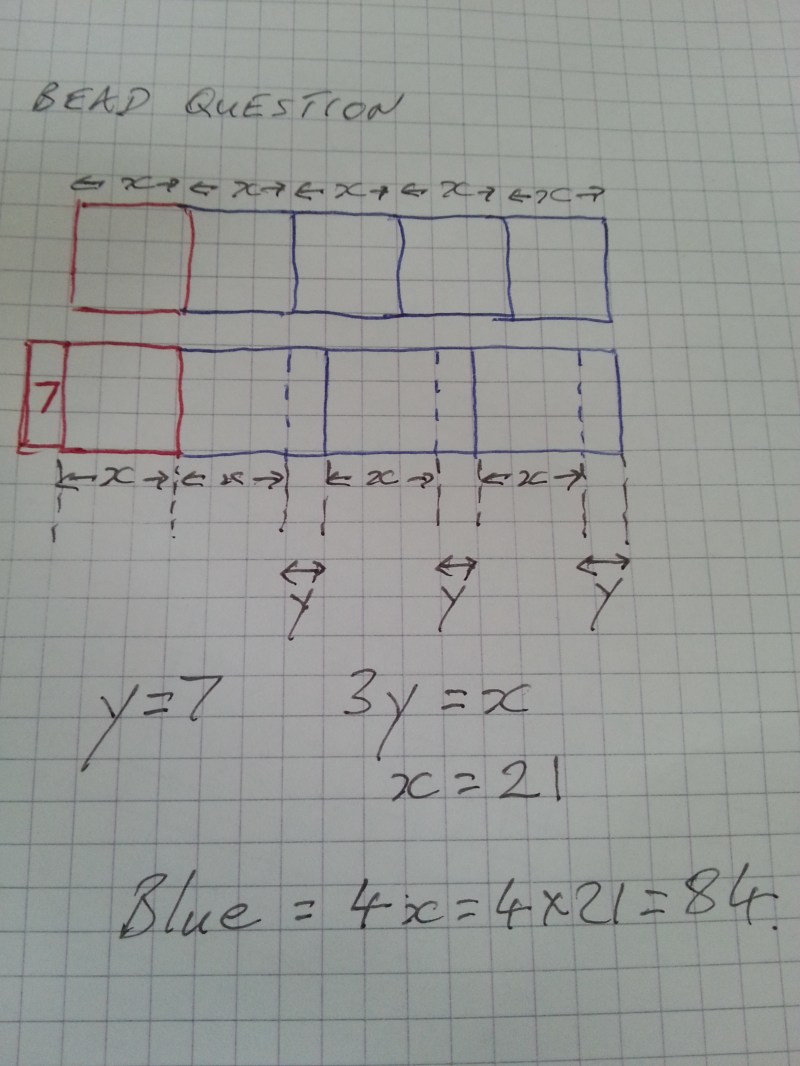 BEAD QUESTION
x x x x x
7
x x x x
y y y
y=7 3y = x
x = 21
Blue = 4x = 4x21 = 84.